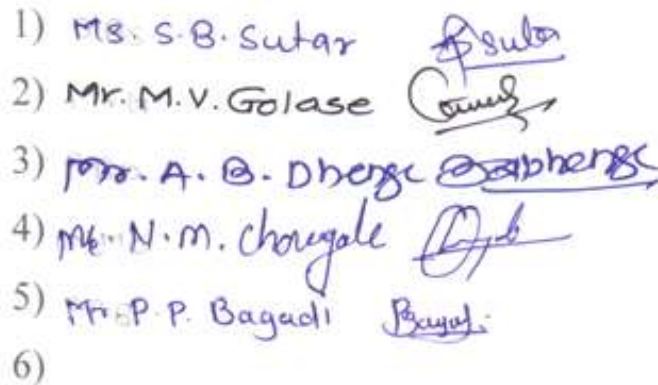 1) Ms. S. B. Sutar Sutar
2) Mr. M. V. Golase
3) Mr. A. B. Dhenge ABDhenge
4) Mr. N. M. Chougale
5) Mr. P. P. Bagadi
6)